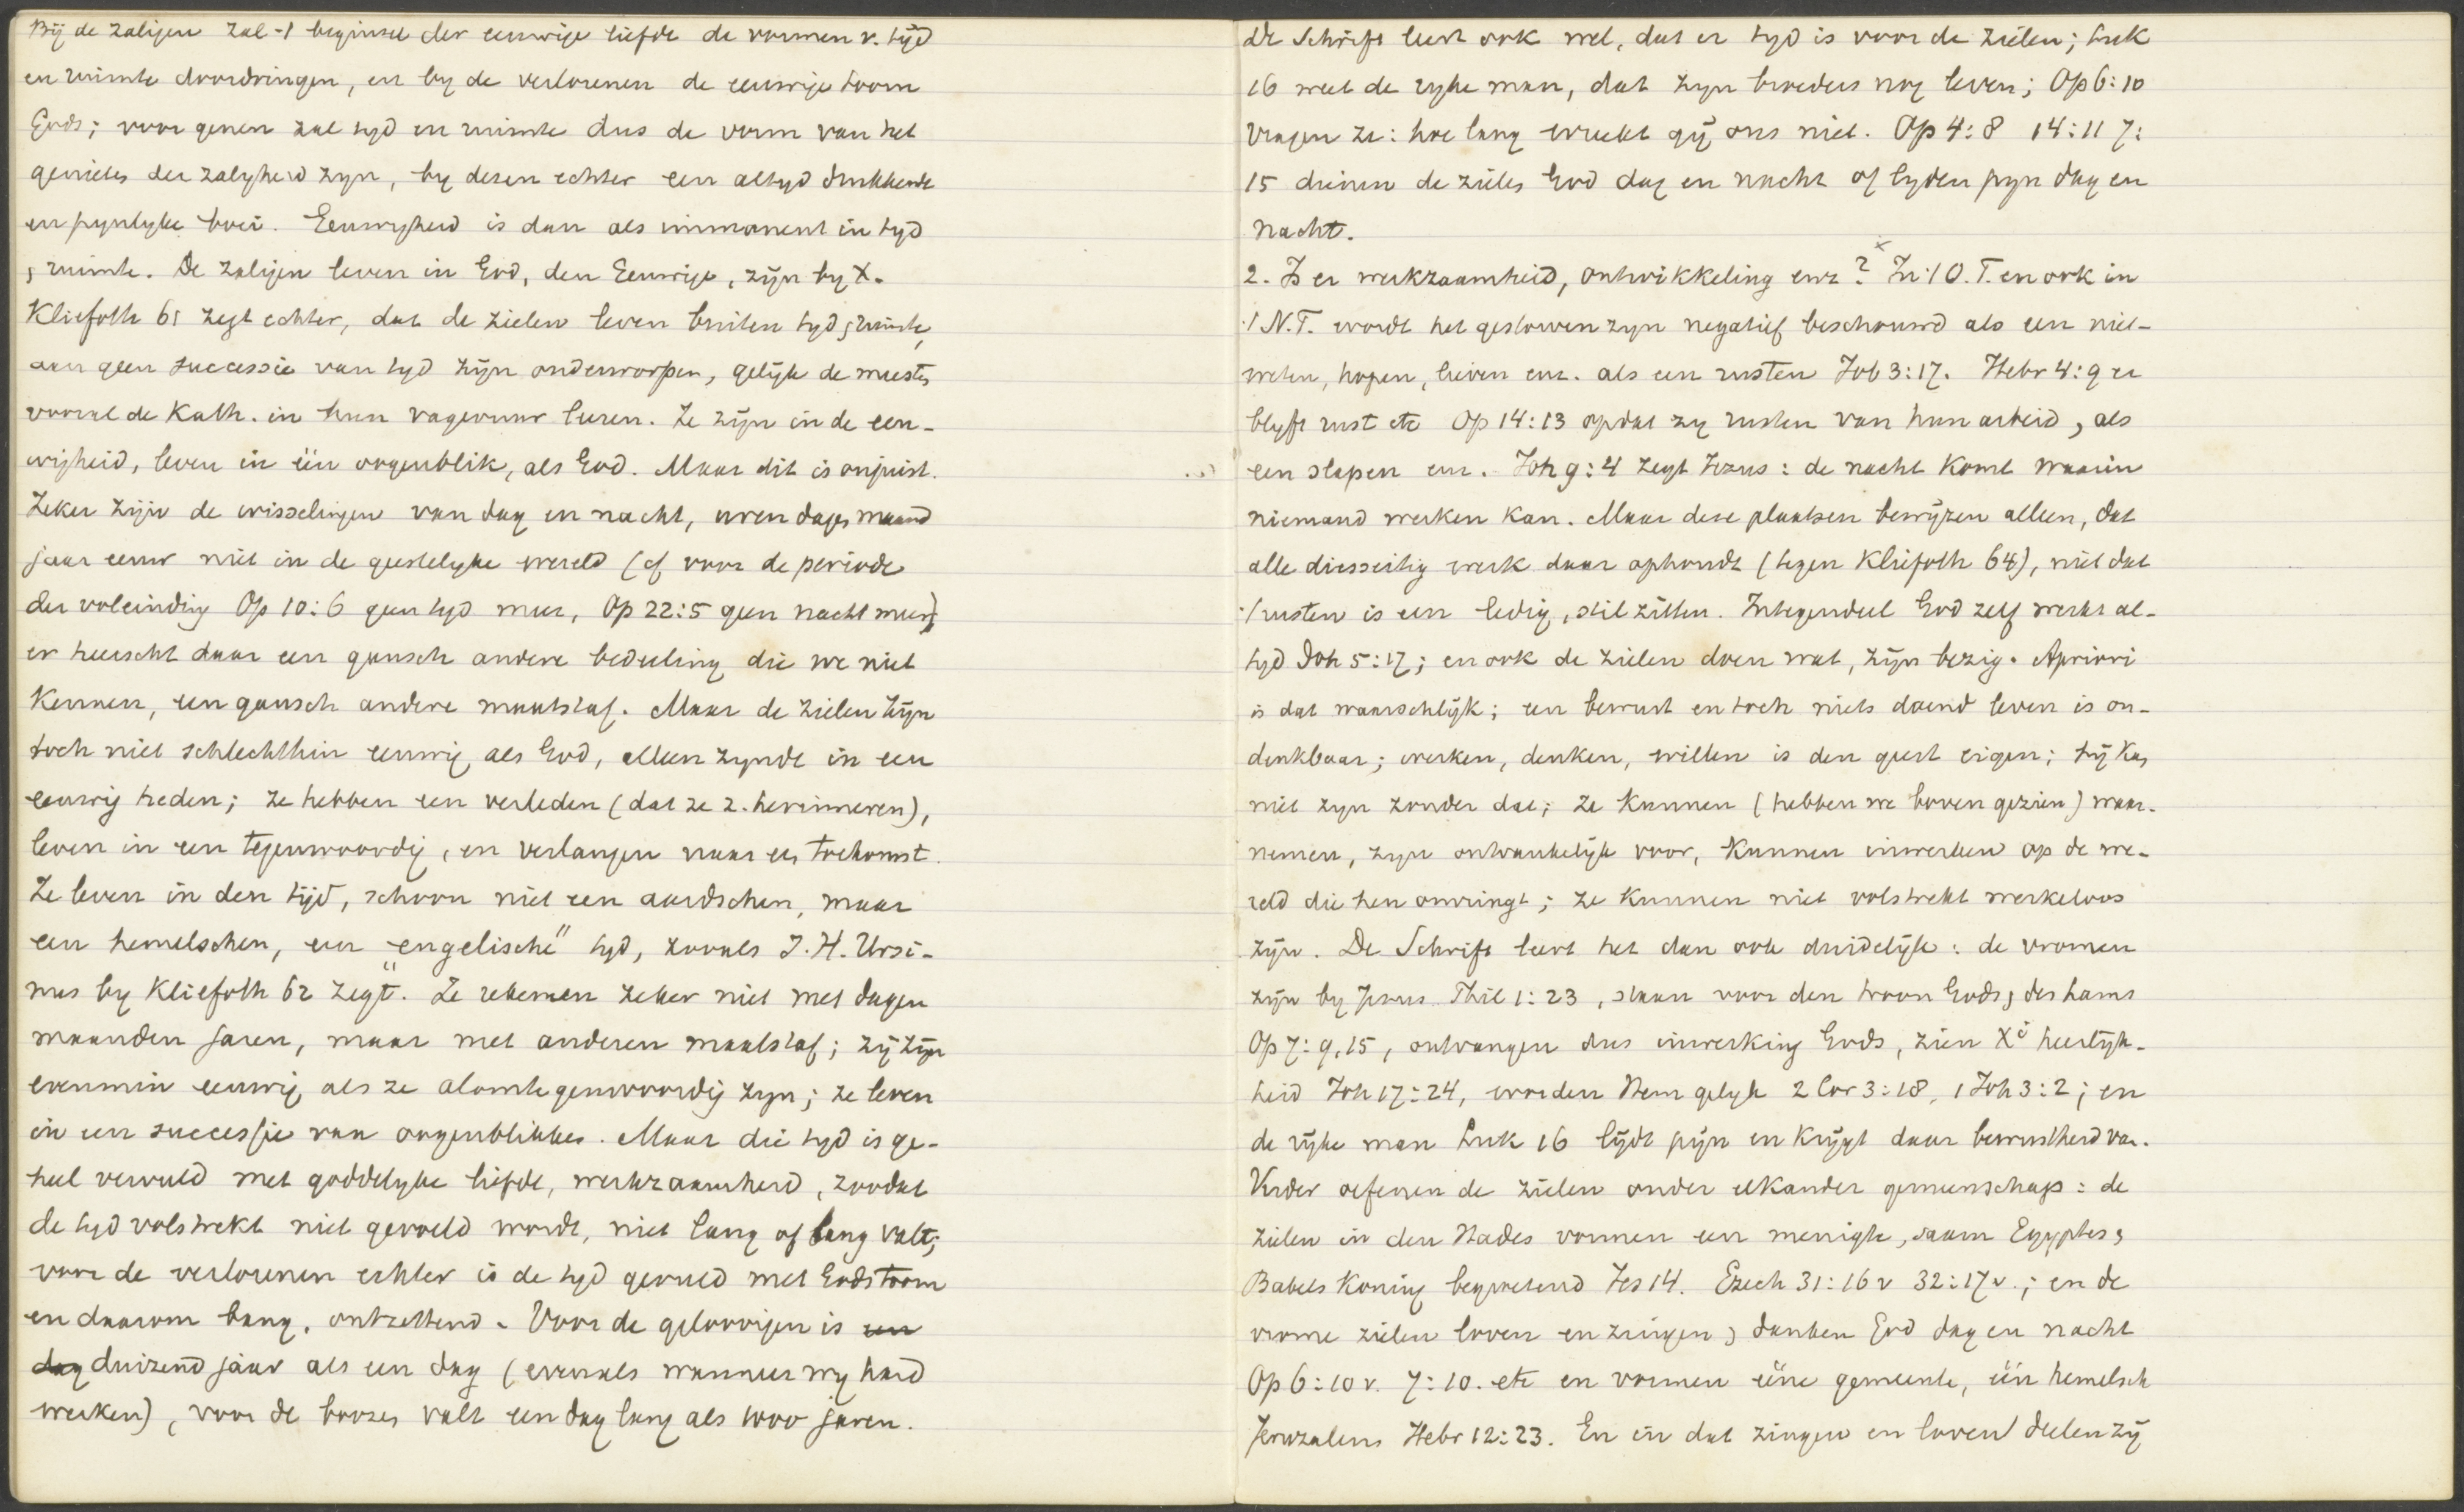 Bij de zaligen zal -t beginsel der eeuwige liefde de vormen v. tijd
en ruimte doordringen, en by de verlorenen de eeuwige toorn
Gods; voor genen zal tyd en ruimte dus de vorm van het
genieten der zalyheid zyn, by dezen echter een altyd drukkende
en pynlyke boei. Eeuwigheid is dan als immanent in tyd
, ruimte. De zaligen leven in God, den Eeuwige, zijn by X.
Kliefoth 61 zegt echter, dat de zielen leven buiten tyd, ruimte,
aan geen successie van tyd zijn onderworpen, gelijk de meesten
vooral de Kath. in hun vagevuur leeren. Ze zijn in de een-
wigheid, leven in één oogenblik, als God. Maar dit is onjuist.
Zeker zijn de wisselingen van dag en nacht, uren dagen maand
jaar eeuw niet in de geestelyke wereld (of voor de periode
der voleinding Op 10:6 geen tyd meer, Op 22:5 geen nacht meer),
er heerscht daar een gansch andere bedeeling die we niet
kennen, een gansch andere maatstaf. Maar de zielen zijn
toch niet schlechthin eeuwig als God, alleen zynde in een
eeuwig heden; ze hebben een verleden (dat ze z. herinneren),
leven in een tegenwoordig, en verlangen naar een toekomst.
Ze leven in den tijd, schoon niet een aardschen, maar
een hemelschen, een "engelische" tyd, zooals J.H. Ursi-
nus by Kliefoth 62 zegt. Ze rekenen zeker niet met dagen
maanden jaren, maar met anderen maatstaf; zij zijn
evenmin eeuwig als ze alomtegenwoordig zyn; ze leven
in een successie van oogenblikken. Maar die tyd is ge-
heel vervuld met goddelyke liefde, werkzaamheid, zoodat
de tyd volstrekt niet gevoeld wordt, niet lang of bang valt;
voor de verlorenen echter is de tyd gevuld met Gods toorn
en daarom bang, ontzettend. Voor de geloovigen is een
dag duizend jaar als een dag (evenals wanneer wy hard
werken), voor de boozen valt een dag lang als 1000 jaren.
De Schrift leert ook wel, dat er tyd is voor de zielen; Luk
16 weet de ryke man, dat zyn broeders nog leven; Op 6:10
vragen ze: hoe lang wreekt gij ons niet. Op 4:8 14:11 7:
15 dienen de zielen God dag en nacht of lyden pyn dag en
nacht.
2. Is er werkzaamheid, ontwikkeling enz? x In 't O.T. en ook in
't N.T. wordt het gestorven zyn negatief beschouwd als een niet-
weten, hopen, lieven enz. als een rusten Job 3:17. Hebr 4:9 er
blyft rust etc Op 14:13 opdat zy rusten van hun arbeid, als
een slapen enz. Joh 9:4 zegt Jezus: de nacht komt waarin
niemand werken kan. Maar deze plaatsen bewijzen alleen, dat
alle diesseitig werk daar ophoudt (tegen Kliefoth 64), niet dat
't rusten is een ledig, stil zitten. Integendeel God zelf werkt al-
tyd Joh 5:17; en ook de zielen doen wat, zijn bezig. Apriori
is dat waarschlijk; een bewust en toch niets doend leven is on-
denkbaar; werken, denken, willen is den geest eigen; hij kan
niet zyn zonder dat; ze kunnen (hebben we boven gezien) waar-
nemen, zyn ontvankelijk voor, kunnen inwerken op de we-
reld die hen omringt; ze kunnen niet volstrekt werkeloos
zijn. De Schrift leert het dan ook duidelijk: de vromen
zijn by Jezus Phil 1:23, staan voor den troon Gods, des Lams
Op 7:9,15, ontvangen dus inwerking Gods, zien Xi heerlijk-
heid Joh 17:24, worden Hem gelyk 2 Cor 3:18, 1 Joh 3:2; en
de rijke man Luk 16 lijdt pijn en krijgt daar bewustheid van.
Verder oefenen de zielen onder elkander gemeenschap: de
zielen in den Hades vormen een menigte, saam Egyptes,
Babels koning begroetend Jes 14. Ezech 31:16v 32:17v.; en de
vrome zielen loven en zingen, danken God dag en nacht
Op 6:10v. 7:10. etc en vormen ééne gemeente, één hemelsch
Jeruzalem Hebr 12:23. En in dat zingen en loven deelen zij